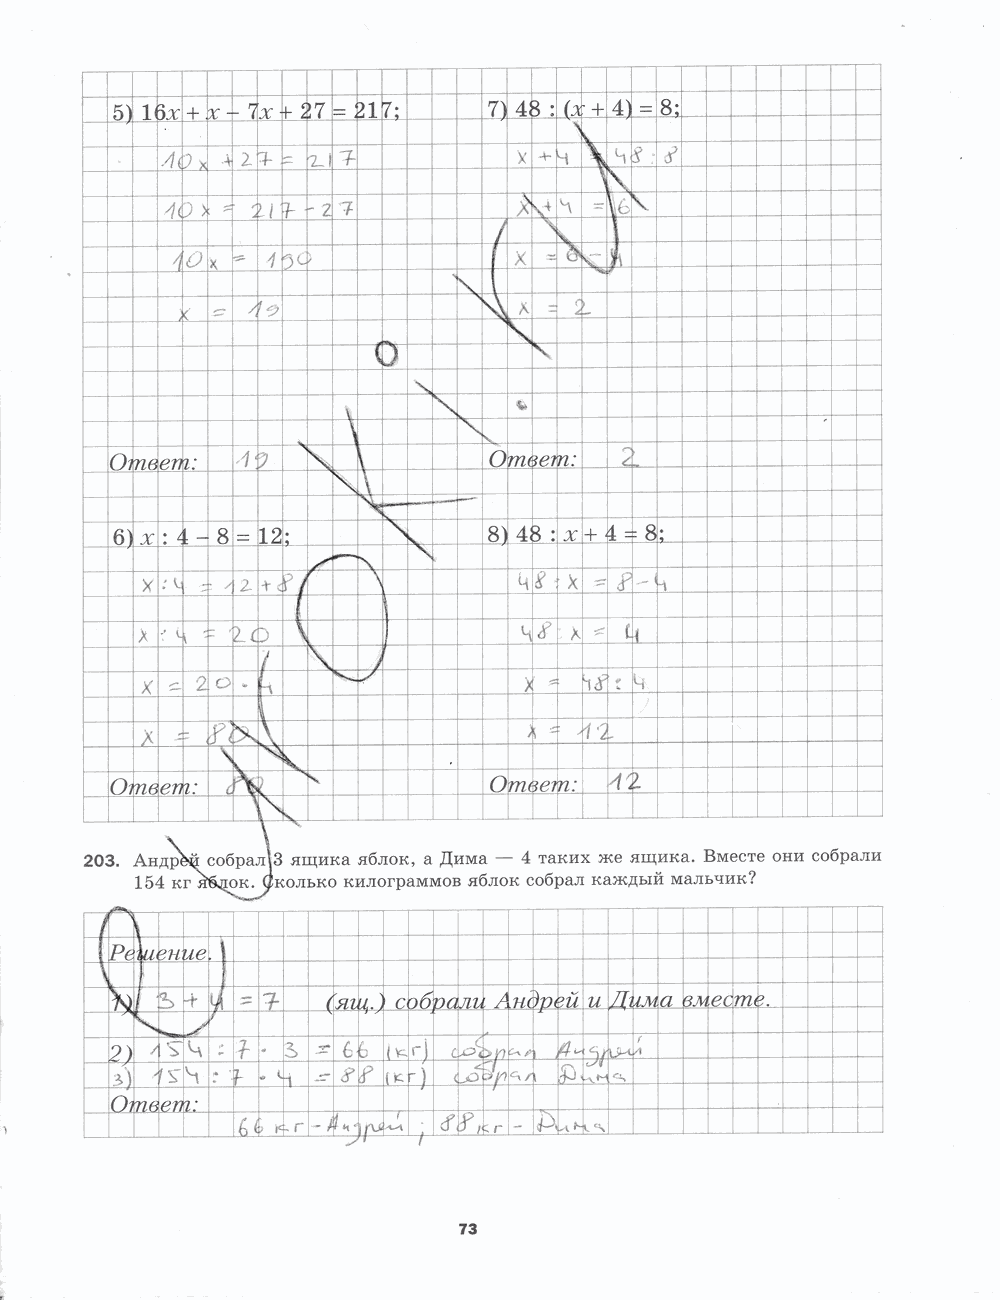 5) 16x + x – 7x + 27 = 217;
10x + 27 = 217
10x = 217 - 27
10x = 190
x = 19
Ответ: 19
7) 48 : (x + 4) = 8;
x + 4 = 48 : 8
x + 4 = 6
x = 6 - 4
x = 2
Ответ: 2
6) x : 4 – 8 = 12;
x : 4 = 12 + 8
x : 4 = 20
x = 20 · 4
x = 80
Ответ: 80
8) 48 : x + 4 = 8;
48 : x = 8 - 4
48 : x = 4
x = 48 : 4
x = 12
Ответ: 12
203. Андрей собрал 3 ящика яблок, а Дима — 4 таких же ящика. Вместе они собрали
154 кг яблок. Сколько килограммов яблок собрал каждый мальчик?
Решение.
1) 3 + 4 = 7 (ящ.) собрали Андрей и Дима вместе.
2) 154 : 7 · 3 = 66 (кг) собрал Андрей
3) 154 : 7 · 4 = 88 (кг) собрал Дима
Ответ:
66 кг - Андрей ; 88 кг - Дима
73